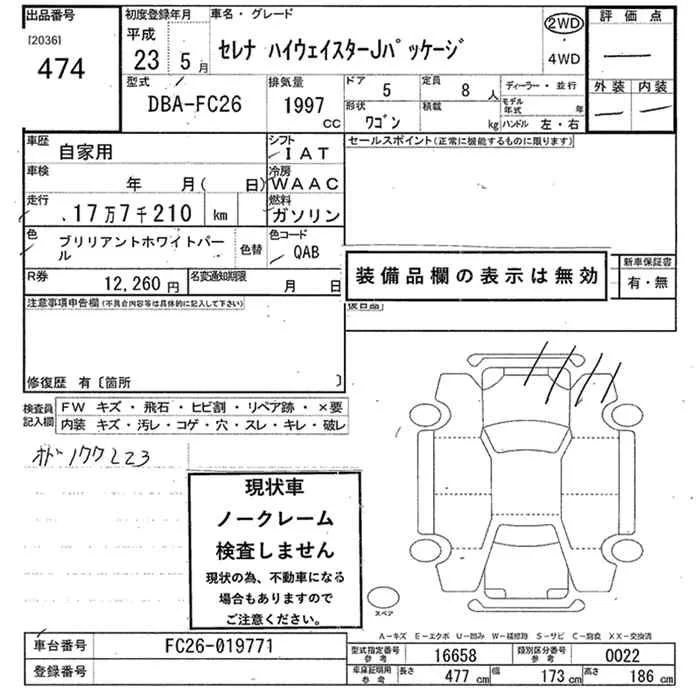 出品番号
[2036]
474
初度登録年月
平成
23 5月
車名・グレード
セレナ ハイウェイスターJパッケージ
2WD
4WD
評価点
外装 内装
型式
DBA-FC26
排気量
1997
CC
ドア
5
定員
8人
形状
ワゴン
積載
kg
ディーラー・並行
モデル年式 年
ハンドル 左・右
車歴
自家用
シフト
IAT
セールスポイント(正常に機能するものに限ります)
車検
年 月( 日)
冷房
WAAC
走行
17万7千210 km
燃料
ガソリン
色
ブリリアントホワイトパール
色替
色コード
QAB
装備品欄の表示は無効
新車保証書
有・無
R券
12,260円
名変通知期限
月 日
注意事項申告欄(不具合内容等は具体的に記入して下さい)
修復歴 有〔箇所 〕
検査員記入欄
FW キズ・飛石・ヒビ割・リペア跡・×要
内装 キズ・汚レ・コゲ・穴・スレ・キレ・破レ
オド177223
現状車
ノークレーム
検査しません
現状の為、不動車になる
場合もありますので
ご注意ください。
スペア
A-キズ E-エクボ U-凹み W-補修跡 S-サビ C-腐食 XX-交換済
車台番号
FC26-019771
登録番号
型式指定番号
参考
16658
類別区分番号
参考
0022
車庫証明用
参考
長さ
477 cm
幅
173 cm
高さ
186 cm